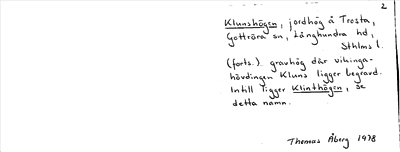 2
Klunshögen, jordhög å Trosta,
Gottröra sn, Långhundra hd,
Sthlms l.
(forts.) gravhög där vikinga-
hövdingen Kluns ligger begravd.
Intill ligger Klinthögen, se
detta namn.
Thomas Åberg 1978